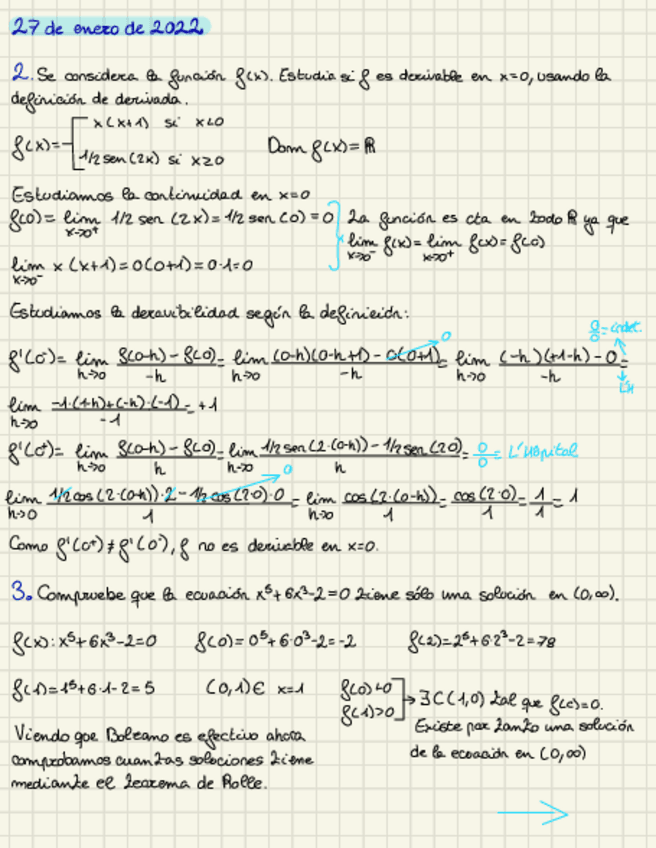 27 de enero de 2022
2. Se considera la función f(x). Estudia si f es derivable en x=0, usando la
definición de derivada.
x(x+1) si x<0
f(x)= Dom f(x)=ℝ
1/2 sen(2x) si x≥0
Estudiamos la continuidad en x=0
f(0)= lim x→0⁺ 1/2 sen (2x)=1/2 sen(0)=0 La función es cta en todo ℝ ya que
lim x→0⁻ f(x)= lim x→0⁺ f(x)=f(0)
lim x→0⁻ x(x+1)=0(0+1)=0·1=0
Estudiamos la deravibilidad según la definición:
f'(0⁻)= lim h→0 (f(0-h)-f(0))/-h = lim h→0 ((0-h)(0-h+1)-0(0+1))/-h = lim h→0 ((-h)(+1-h)-0)/-h = 0/0=indet. L'H
lim h→0 (-1·(1-h)+(-h)·(-1))/-1 = +1
f'(0⁺)= lim h→0 (f(0-h)-f(0))/h = lim h→0 (1/2 sen(2·(0-h))-1/2 sen(2·0))/h = 0/0= L'Hôpital
lim h→0 (1/2 cos(2·(0-h))·2-1/2 cos(2·0)·0)/1 = lim h→0 cos(2·(0-h))/1 = cos(2·0)/1 = 1/1 = 1
Como f'(0⁺)≠f'(0⁻), f no es derivable en x=0.
3. Compruebe que la ecuación x⁵+6x³-2=0 tiene sólo una solución en (0,∞).
f(x): x⁵+6x³-2=0 f(0)=0⁵+6·0³-2=-2 f(2)=2⁵+6·2³-2=78
f(1)=1⁵+6·1-2=5 (0,1)∈ x=1 f(0)<0
f(1)>0 → ∃C(1,0) tal que f(c)=0.
Existe por tanto una solución
de la ecuación en (0,∞)
Viendo que Bolzano es efectivo ahora
comprobamos cuantas soluciones tiene
mediante el teorema de Rolle.